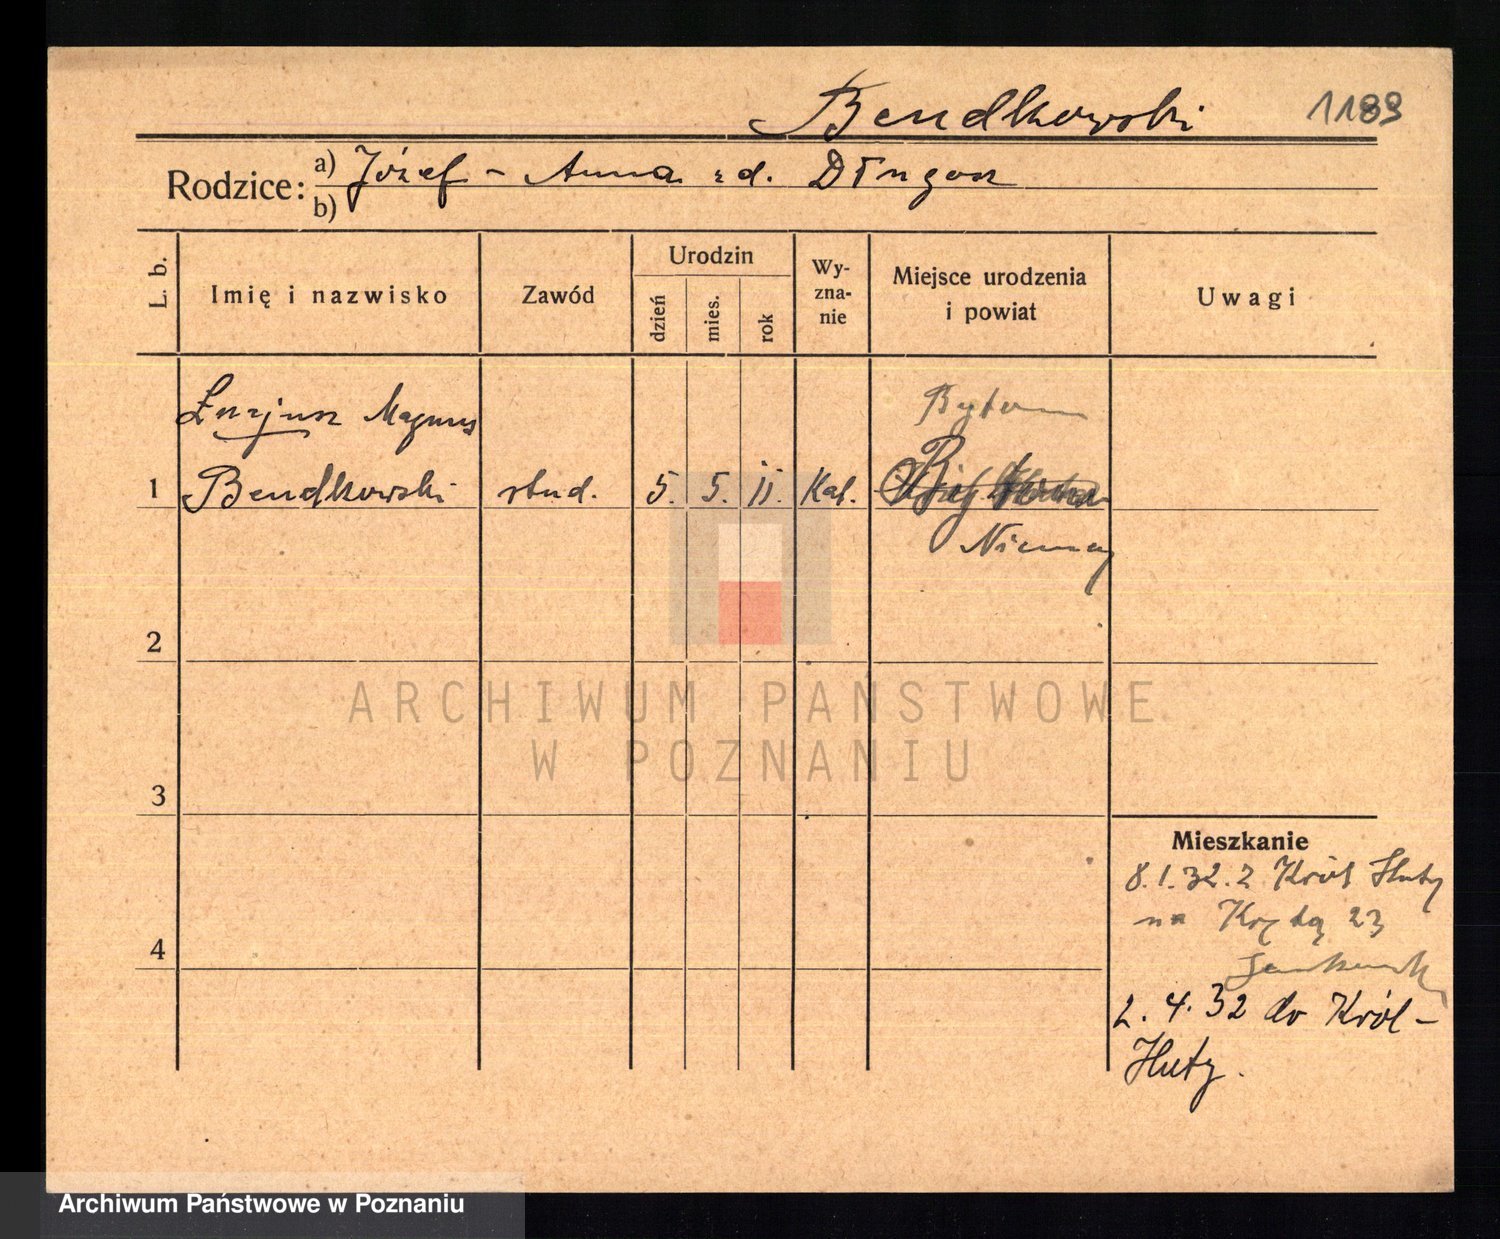 Bendkowski 1189
Rodzice: a) Józef - Anna zd. Długosz
b)
L. b. Imię i nazwisko Zawód Urodzin dzień mies. rok Wy-zna-nie Miejsce urodzenia i powiat Uwagi
Magnus Bytom
1 Bendkowski stud. 5. 5. 11. Kat.
Niemcy
2
ARCHIWUM PAŃSTWOWE
W POZNANIU
3
Mieszkanie
8.1.32. z Król Huty
na 23
4
2.4.32 do Król-
Huty.
Archiwum Państwowe w Poznaniu